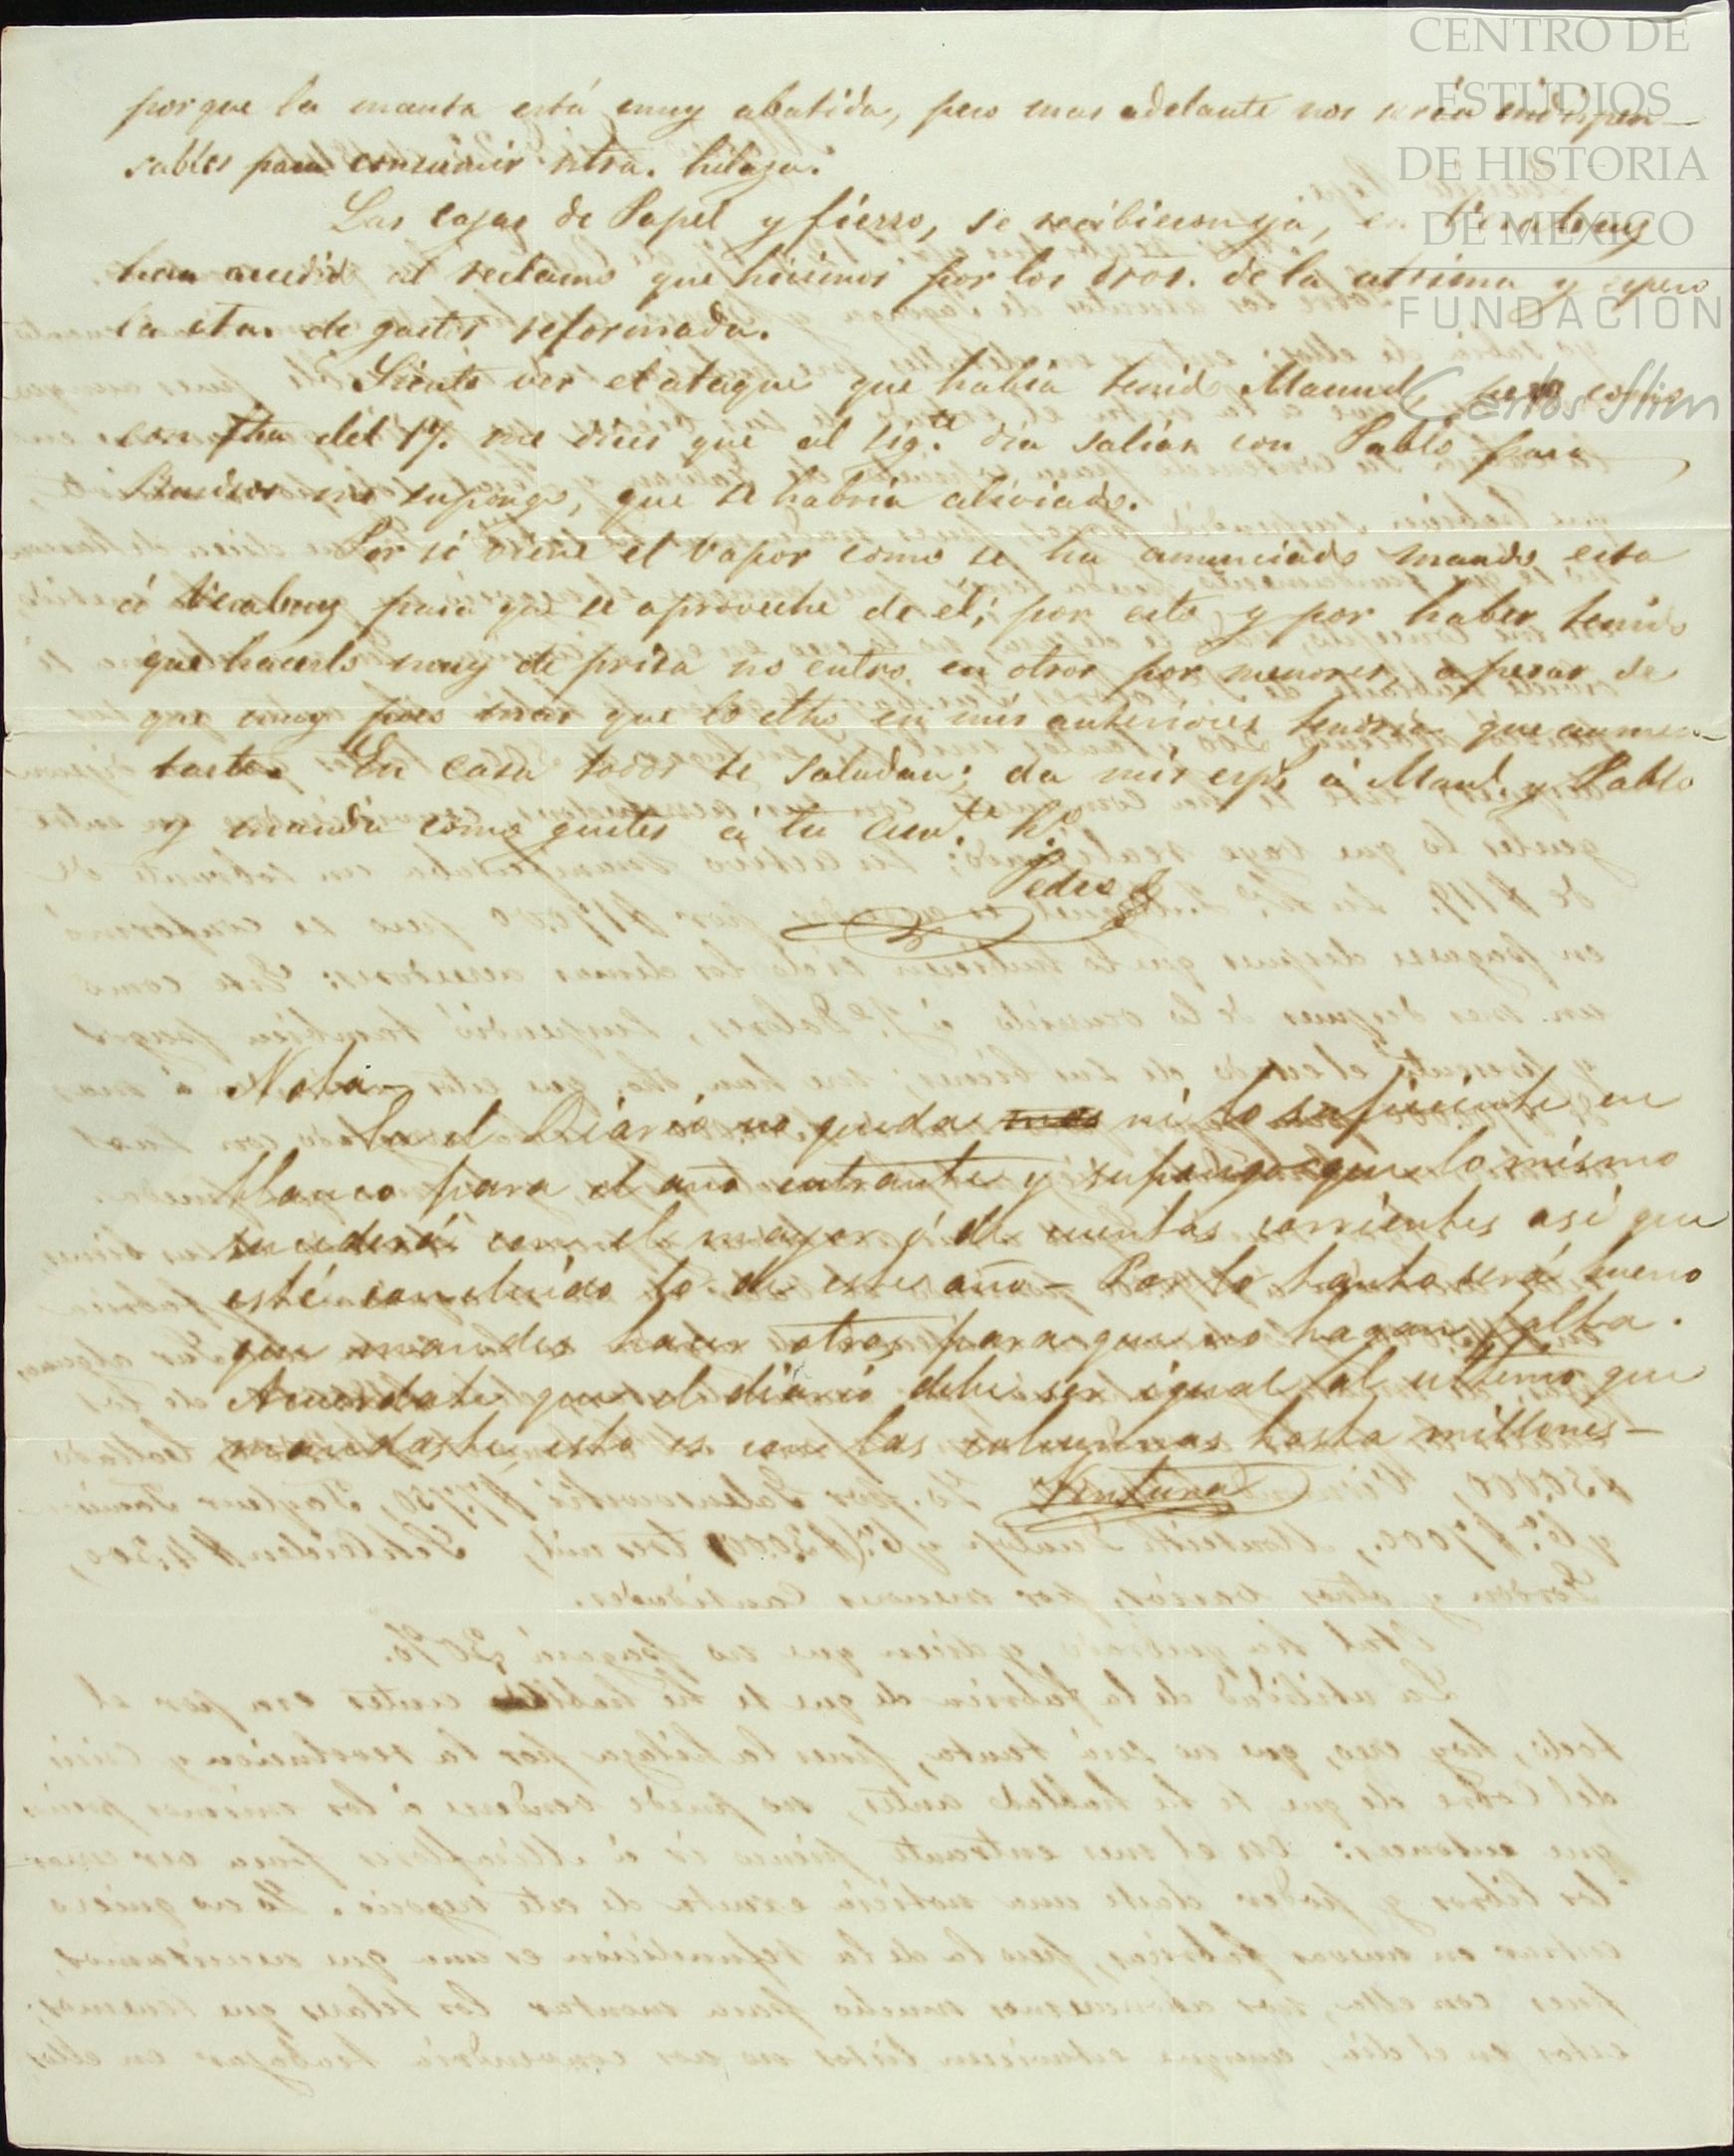 CENTRO DE
ESTUDIOS
DE HISTORIA
DE MÉXICO
FUNDACIÓN
Carlos Slim
porque la manta está muy abatida, pero mas adelante nos serán indispen-
sables para consumir ntra. hilaza.
Las cajas de Papel y fierro, se recibieron ya, en Veracruz
han accedido al reclamo que hicimos por los dros. de la última y espero
la cta. de gastos reformada.
Siento ver el ataque que había tenido Manuel, pero como
con fha del 17. me dices que al sigte. dia salían con Pablo para
me supongo, que se habría aliviado.
Por si viene el Vapor como se ha anunciado mando esta
á Veracruz para que se aproveche de él; por esto y por haber tenido
que hacerlo muy de prisa no entro en otros por menores, a pesar de
que muy poco mas que lo dho en mis anteriores tendria que aumen-
tarte. En casa todos te saludan; da mis esps. á Manl. y Pablo
y manda como gustes á tu Hº.
Pedro
Nota-
En el Diario no queda ni lo suficiente en
blanco para el año entrante y supongo que lo mismo
sucederá con el mayor y de cuentas corrientes así que
esté concluido lo de este año- Por lo tanto será bueno
que mandes hacer otros para que no hagan falta.
Acuerdate que el diario debe ser igual al ultimo que
mandaste, esto es con las columnas hasta millones-
Ventura